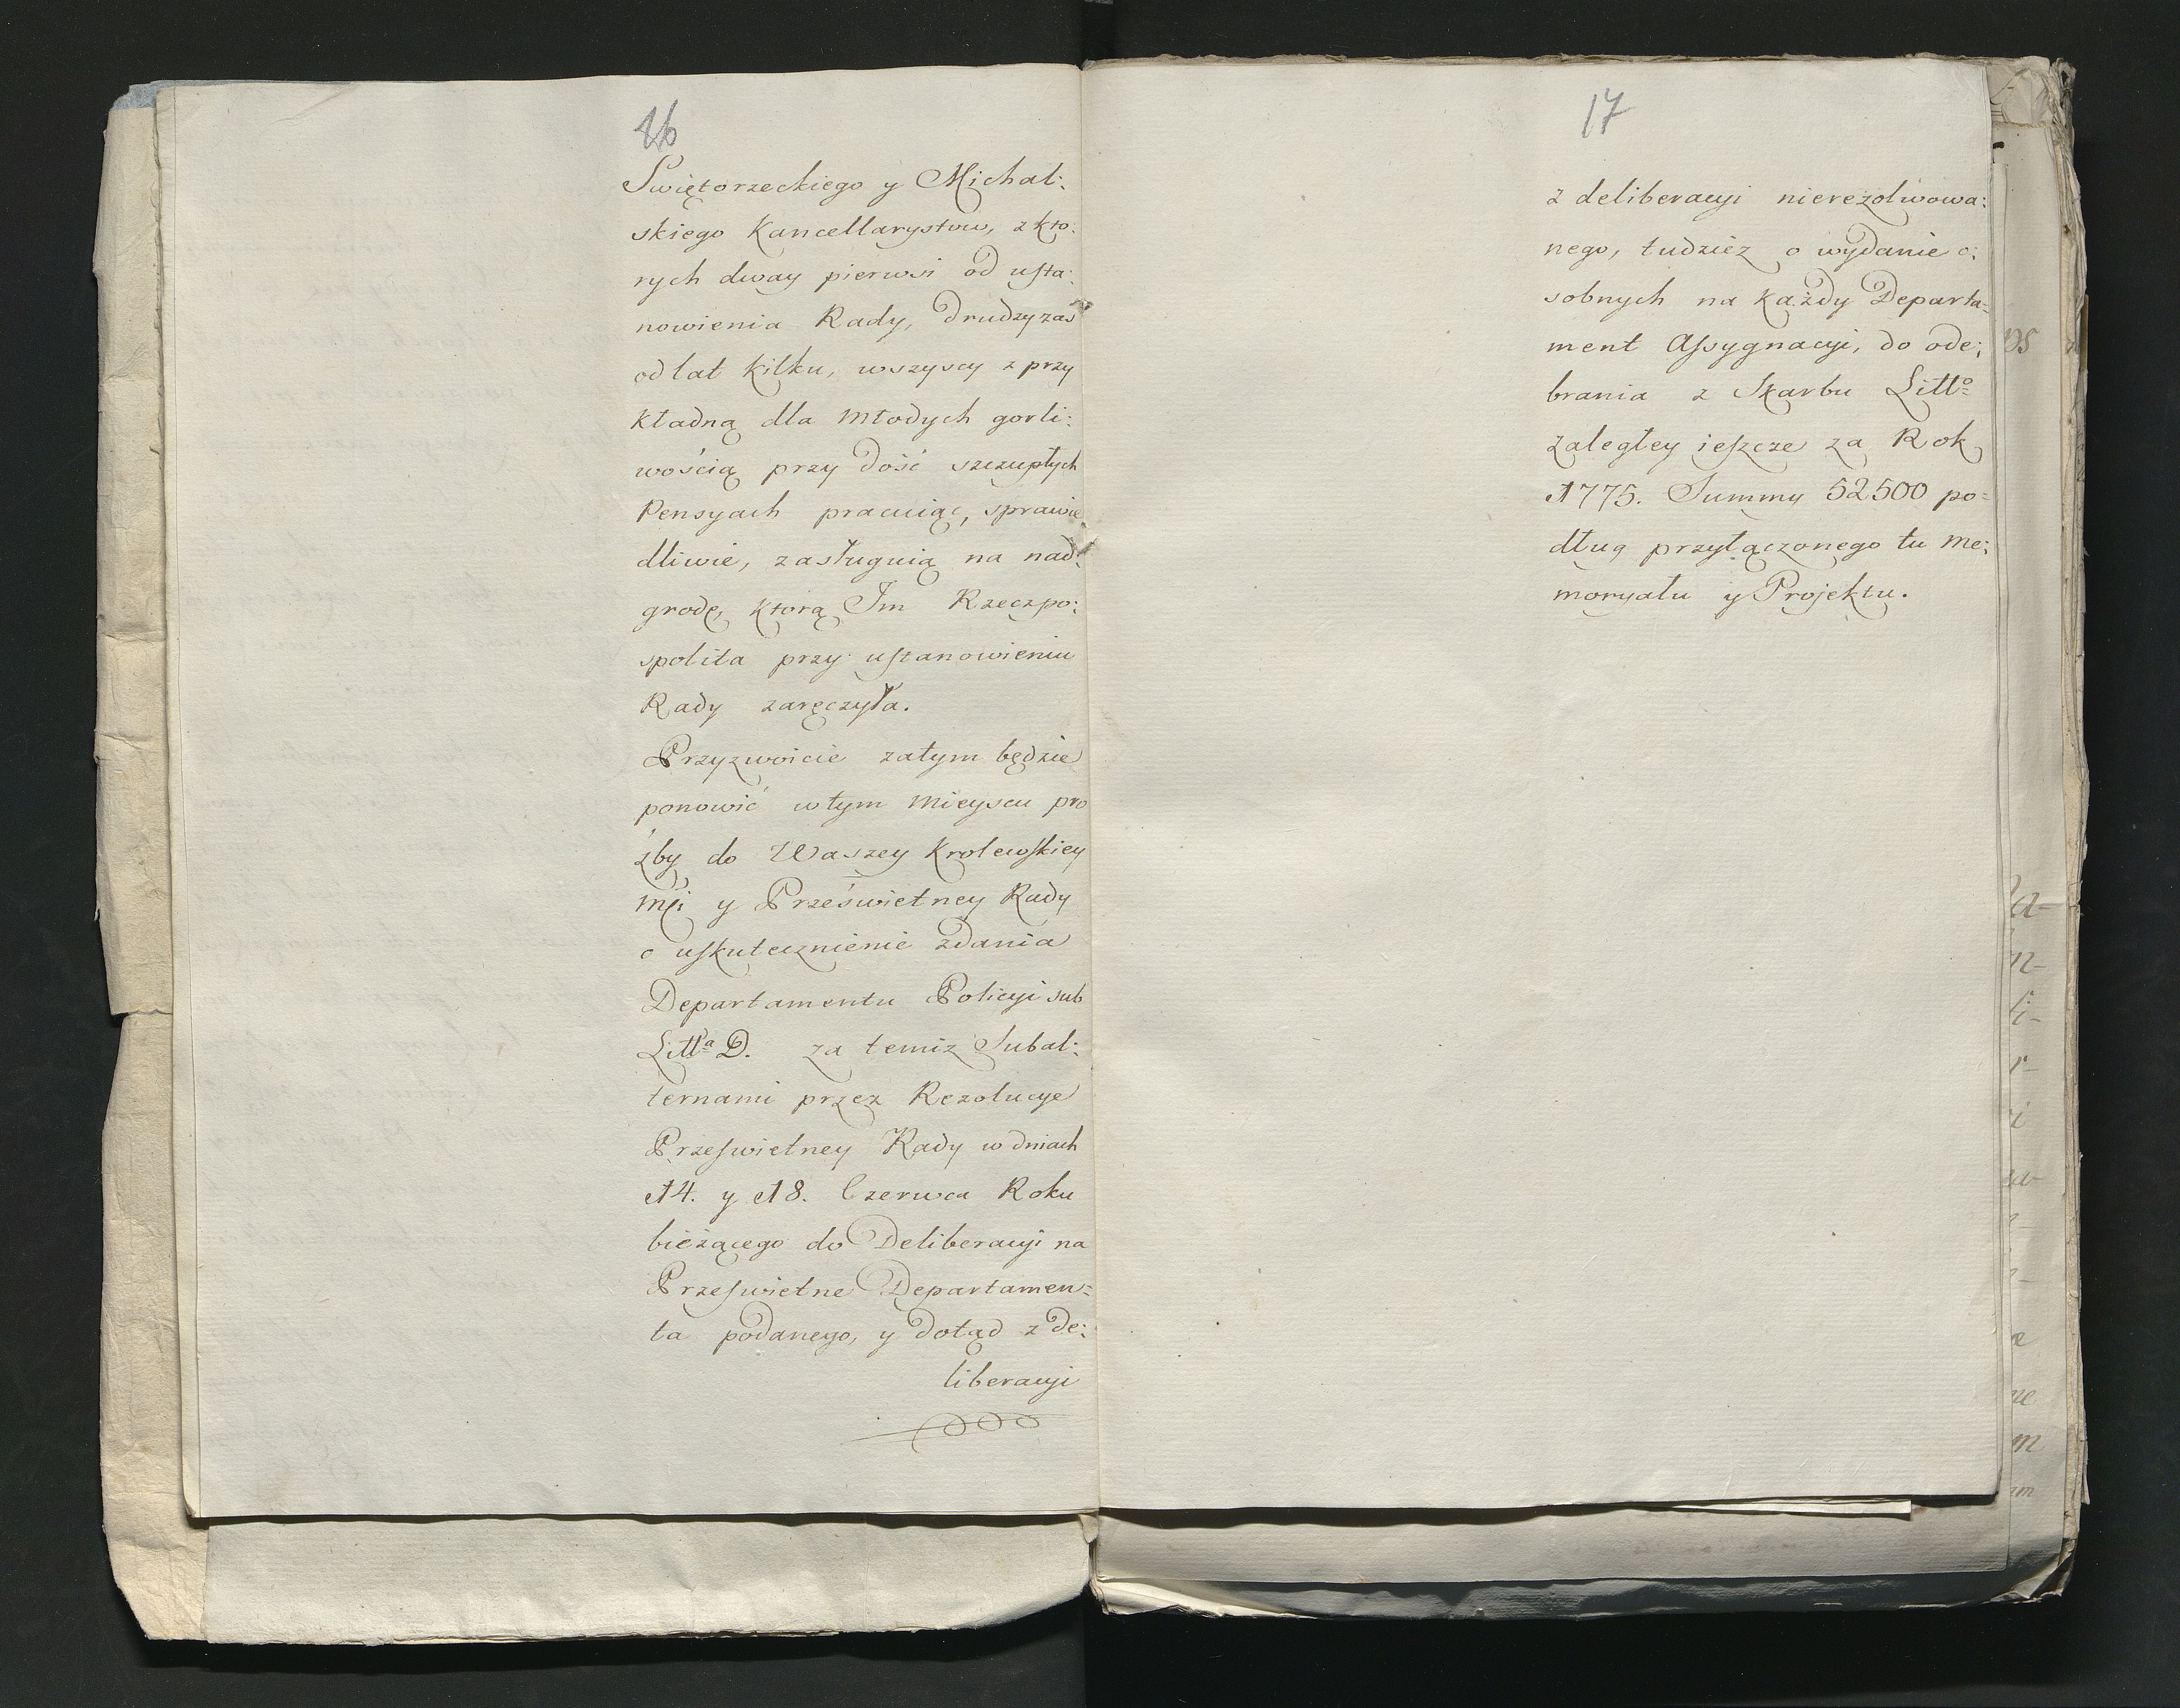 16
Swiętorzeckiego y Michal:
skiego Kancellarystow, z kto:
rych dway pierwsi od usta:
nowienia Rady, drudzy zaś
od lat kilku, wszyscy z przy
kładną dla młodych gorli:
wością przy dość szczupłych
Pensyach pracuiąc, sprawie
dliwie, zasługuią na nad:
grodę, ktorą Im Rzeczpo:
spolita przy ustanowieniu
Rady zaręczyła.
Przyzwoicie zatym będzie
ponowić w tym mieyscu pro
źby do Waszey Krolewskiey
Mći y Prześwietney Rady
o uskutecznienie zdania
Departamentu Policyi sub
Litt<sup>a</sup> D. za temiz Subal:
ternami przez Rezolucye
Prześwietney Rady w dniach
14. y 18. Czerwca Roku
bieżącego do Deliberacyi na
Prześwietne Departamen=
ta podanego, y dotąd z de:
liberacyi
17
z deliberacyi nierezolwowa:
nego, tudzież o wydanie o:
sobnych na każdy Departa=
ment Assygnacyi, do ode:
brania z Skarbu Litt<sup>o</sup>
zaległey ieszcze za Rok
1775. Summy 52500 po=
dług przyłączonego tu Me:
moryału y Projektu.